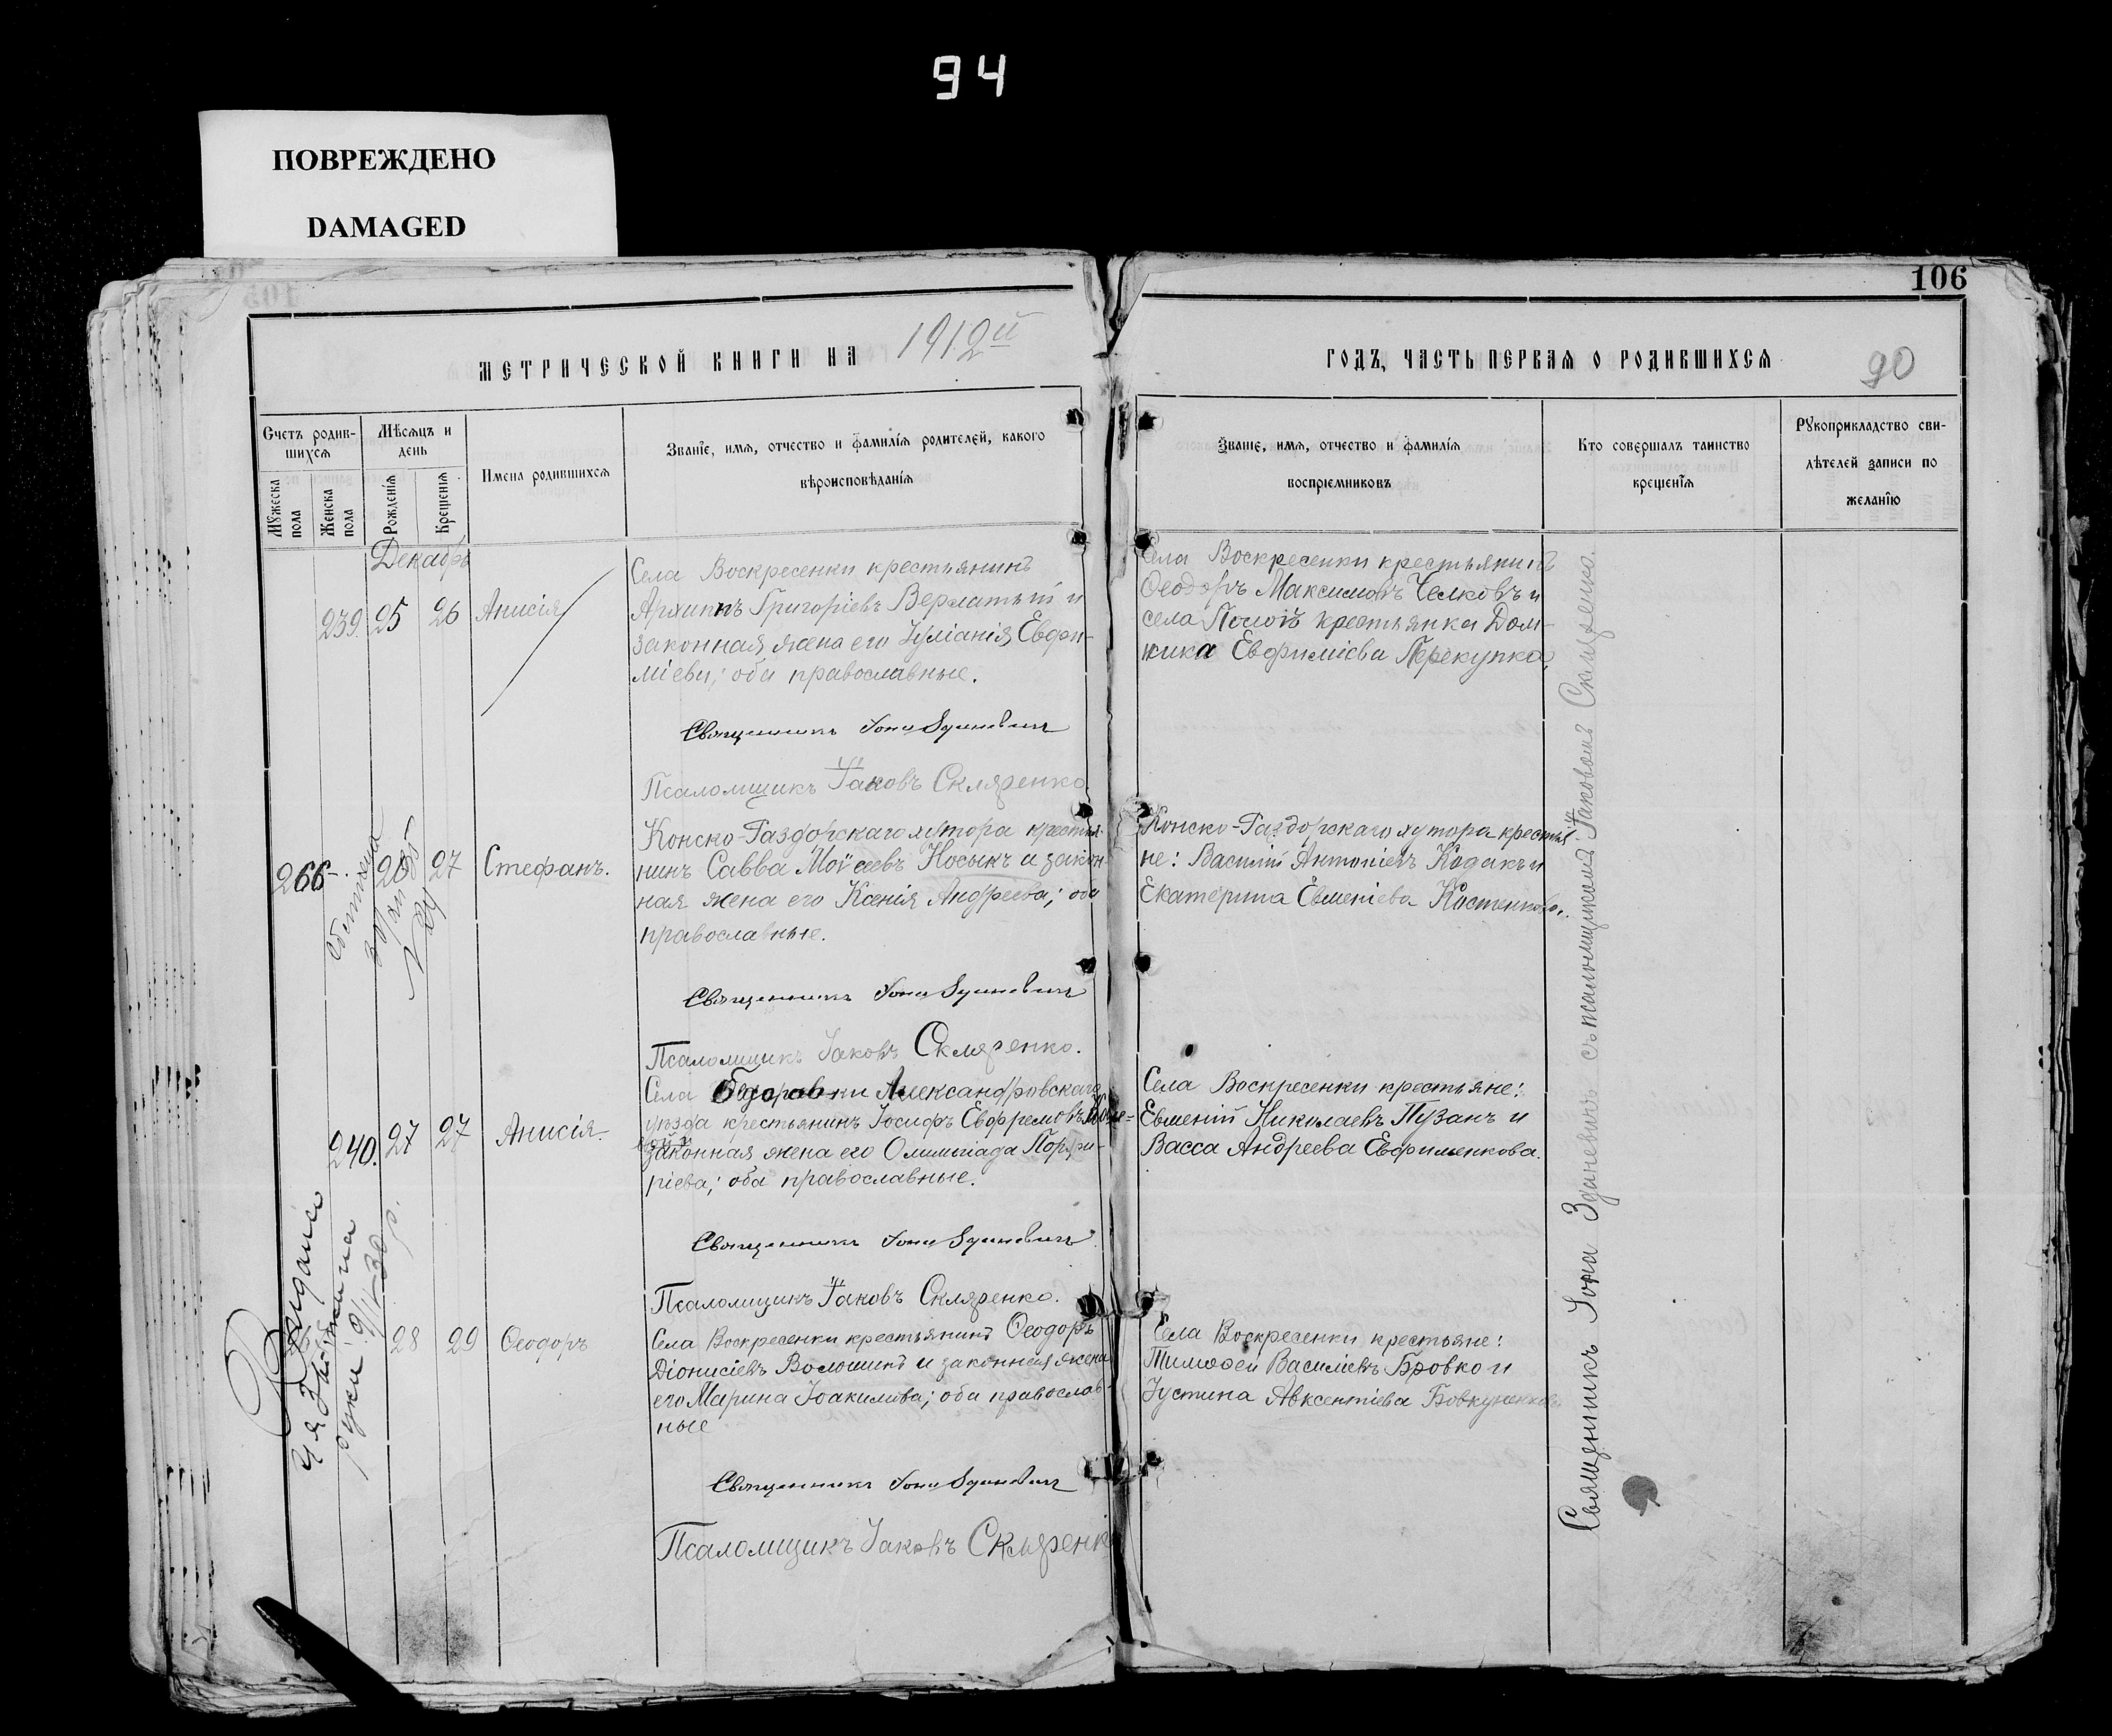 94
ПОВРЕЖДЕНО
DAMAGED
106
МЕТРИЧЕСКОЙ КНИГИ НА 1912й
ГОДЪ, ЧАСТЬ ПЕРВАЯ О РОДИВШИХСЯ
90
Счетъ родив-
шихся
Мужеска
пола
Женска
пола
Мѣсяцъ и
день
Рожденія
Крещенія
Имена родившихся
Званіе, имя, отчество и фамилія родителей, какого
вѣроисповѣданія
Званіе, имя, отчество и фамилія
воспріемниковъ
Кто совершалъ таинство
крещенія
Рукоприкладство сви-
дѣтелей записи по
желанію
Декабрь
239. 25 26 Анисія
Села Воскресенки крестьянинъ
Архиппъ Григоріевъ Верлатый и
законная жена его Іуліанія Евфи-
міева; оба православные.
Священникъ Іона Зданевичъ
Псаломщикъ Іаковъ Скляренко.
Села Воскресенки крестьянинъ
Ѳеодоръ Максимовъ Челковъ и
села Пологъ крестьянка Дом-
ника Евфиміева Перекупко,
266 26 27 Стефанъ.
Конско-Раздорскаго хутора крестья-
нинъ Савва Моѵсеевъ Носыкъ и закон-
ная жена его Ксенія Андреева; оба
православные.
Священникъ Іона Зданевичъ
Псаломщикъ Іаковъ Скляренко.
Конско-Раздорскаго хутора крестья
не: Василій Антоніевъ Кодакъ и
Екатерина Евменіева Костенково.
240. 27 27 Анисія.
Села Александровскаго
уѣзда крестьянинъ Іосифъ Ефремовъ
законная жена его Олимпіада Порфи-
ріева; оба православные.
Священникъ Іона Зданевичъ
Псаломщикъ Іаковъ Скляренко.
Села Воскресенки крестьяне:
Евменій Николаевъ Пузанъ и
Васса Андреева Евфименкова.
28 29 Ѳеодоръ
Села Воскресенки крестьянинъ Ѳеодоръ
Діонисіевъ Волошинъ и законная жена
его Марина Іоакимова; оба православ-
ные
Священникъ Іона Зданевичъ
Псаломщикъ Іаковъ Скляренко
Села Воскресенки крестьяне:
Тимоѳей Василіевъ Бровко и
Іустина Авксентіева Бовкуненкова
Священникъ Іона Зданевичъ съ псаломщикомъ Іаковомъ Скляренко.